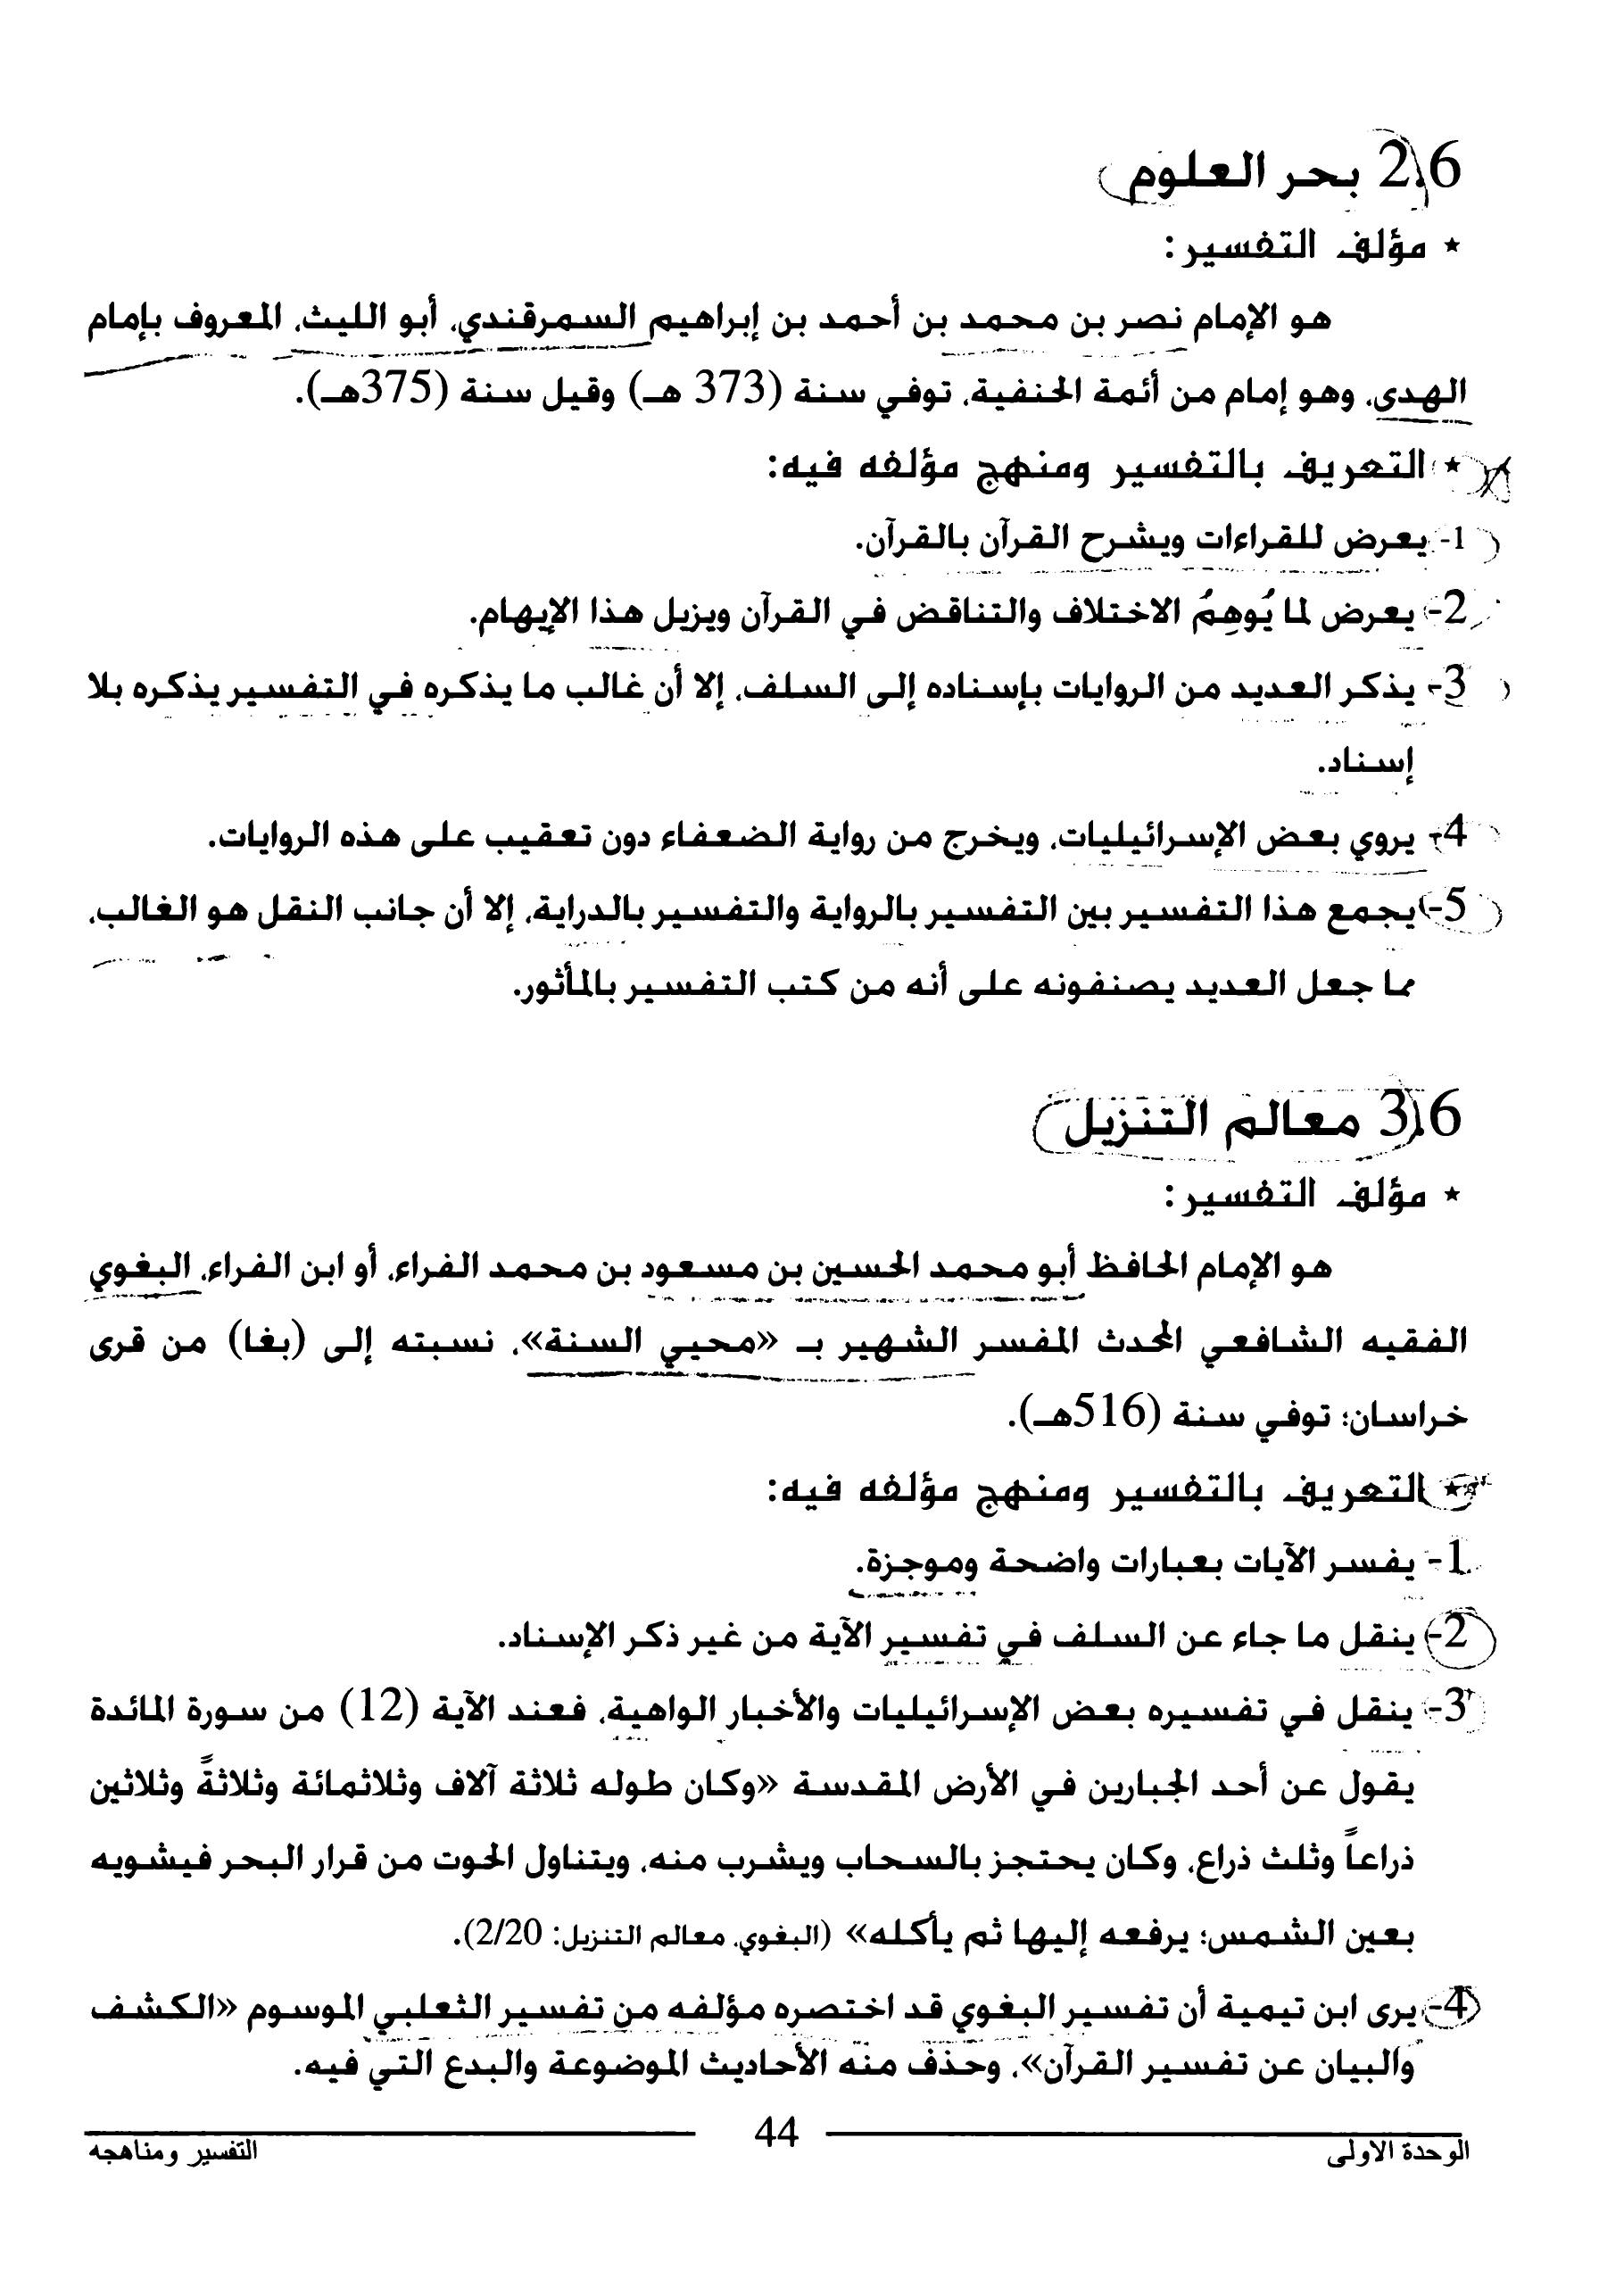 2.6 بحر العلوم
* مؤلف التفسير:
هو الإمام نصر بن محمد بن أحمد بن إبراهيم السمرقندي، أبو الليث، المعروف بإمام
الهدى، وهو إمام من أئمة الحنفية، توفي سنة (373 هـ) وقيل سنة (375هـ).
* التعريف بالتفسير ومنهج مؤلفه فيه:
1- يعرض للقراءات ويشرح القرآن بالقرآن.
2- يعرض لما يُوهِمُ الاختلاف والتناقض في القرآن ويزيل هذا الإيهام.
3- يذكر العديد من الروايات بإسناده إلى السلف، إلا أن غالب ما يذكره في التفسير يذكره بلا
إسناد.
4- يروي بعض الإسرائيليات، ويخرج من رواية الضعفاء دون تعقيب على هذه الروايات.
5- يجمع هذا التفسير بين التفسير بالرواية والتفسير بالدراية، إلا أن جانب النقل هو الغالب،
مما جعل العديد يصنفونه على أنه من كتب التفسير بالمأثور.
3.6 معالم التنزيل
* مؤلف التفسير:
هو الإمام الحافظ أبو محمد الحسين بن مسعود بن محمد الفراء، أو ابن الفراء، البغوي
الفقيه الشافعي المحدث المفسر الشهير بـ «محيي السنة»، نسبته إلى (بغا) من قرى
خراسان؛ توفي سنة (516هـ).
* التعريف بالتفسير ومنهج مؤلفه فيه:
1- يفسر الآيات بعبارات واضحة وموجزة.
2- ينقل ما جاء عن السلف في تفسير الآية من غير ذكر الإسناد.
3- ينقل في تفسيره بعض الإسرائيليات والأخبار الواهية، فعند الآية (12) من سورة المائدة
يقول عن أحد الجبارين في الأرض المقدسة «وكان طوله ثلاثة آلاف وثلاثمائة وثلاثةً وثلاثين
ذراعاً وثلث ذراع، وكان يحتجز بالسحاب ويشرب منه، ويتناول الحوت من قرار البحر فيشويه
بعين الشمس؛ يرفعه إليها ثم يأكله» (البغوي، معالم التنزيل: 2/20).
4- يرى ابن تيمية أن تفسير البغوي قد اختصره مؤلفه من تفسير الثعلبي الموسوم «الكشف
والبيان عن تفسير القرآن»، وحذف منه الأحاديث الموضوعة والبدع التي فيه.
الوحدة الاولى 44 التفسير ومناهجه